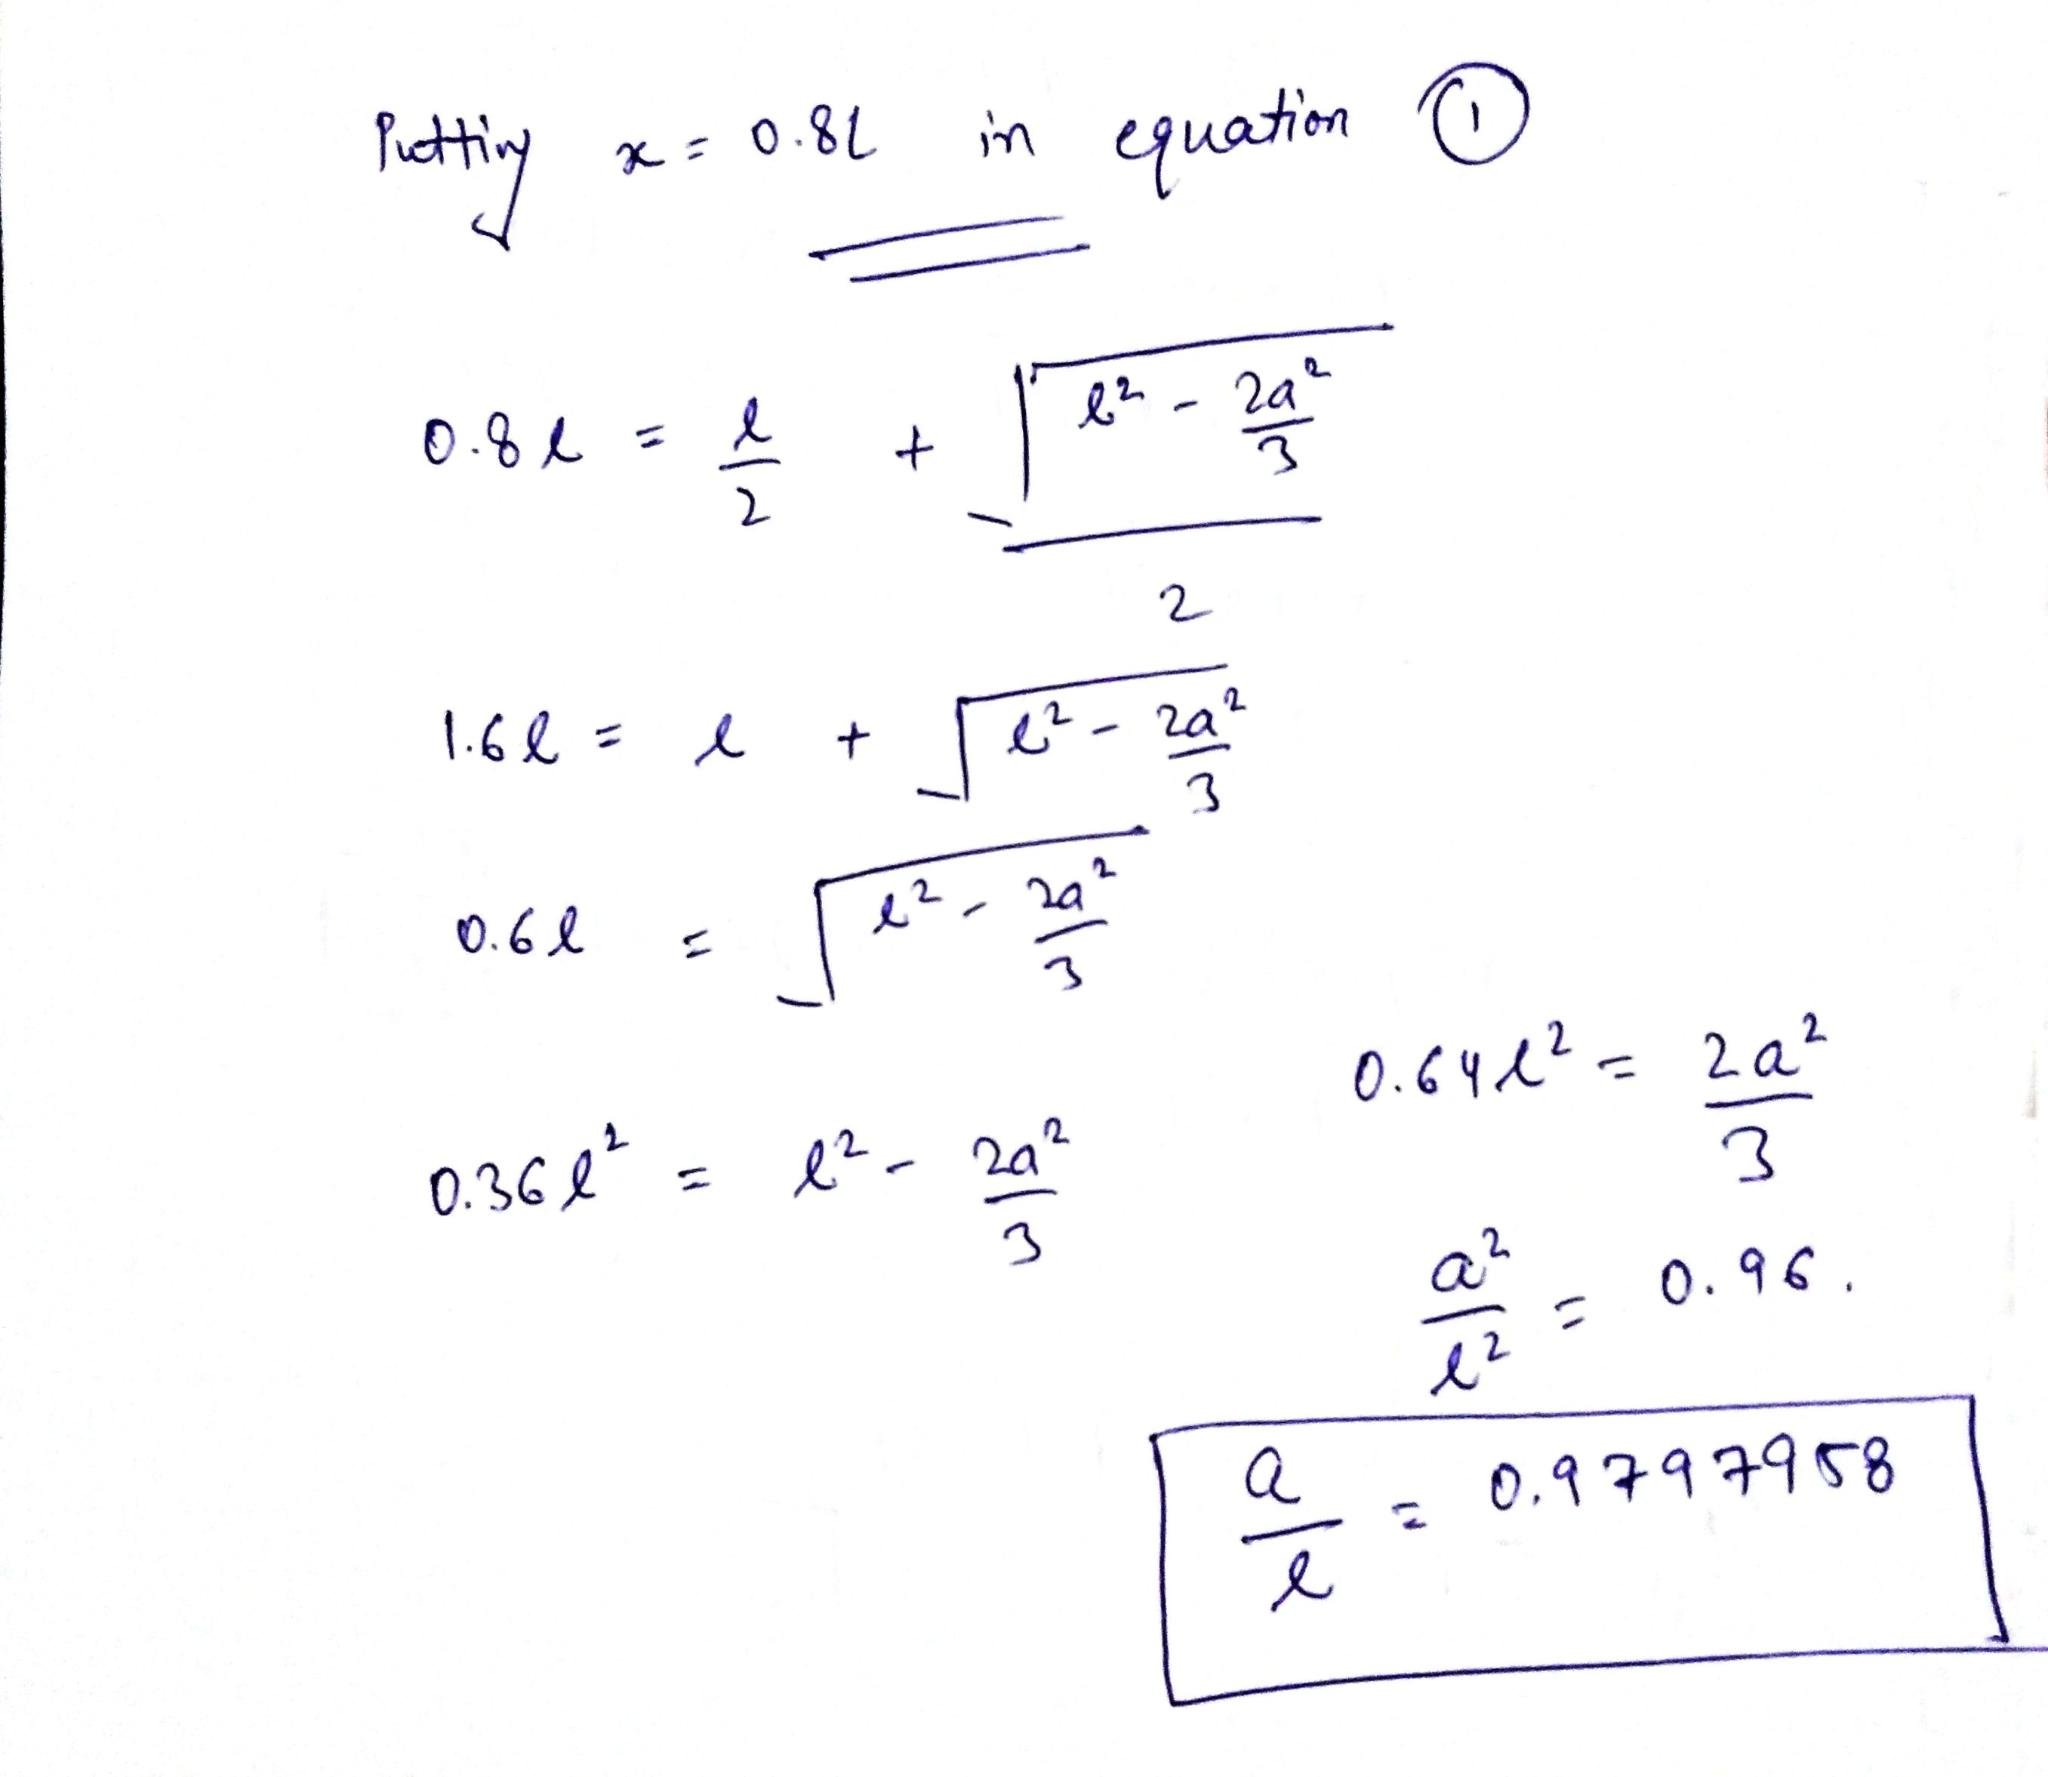 Putting x = 0.8l in equation ①
0.8l = l/2 + √(l² - 2a²/3)/2
1.6l = l + √(l² - 2a²/3)
0.6l = √(l² - 2a²/3)
0.36l² = l² - 2a²/3
0.64l² = 2a²/3
a²/l² = 0.96.
a/l = 0.9797958